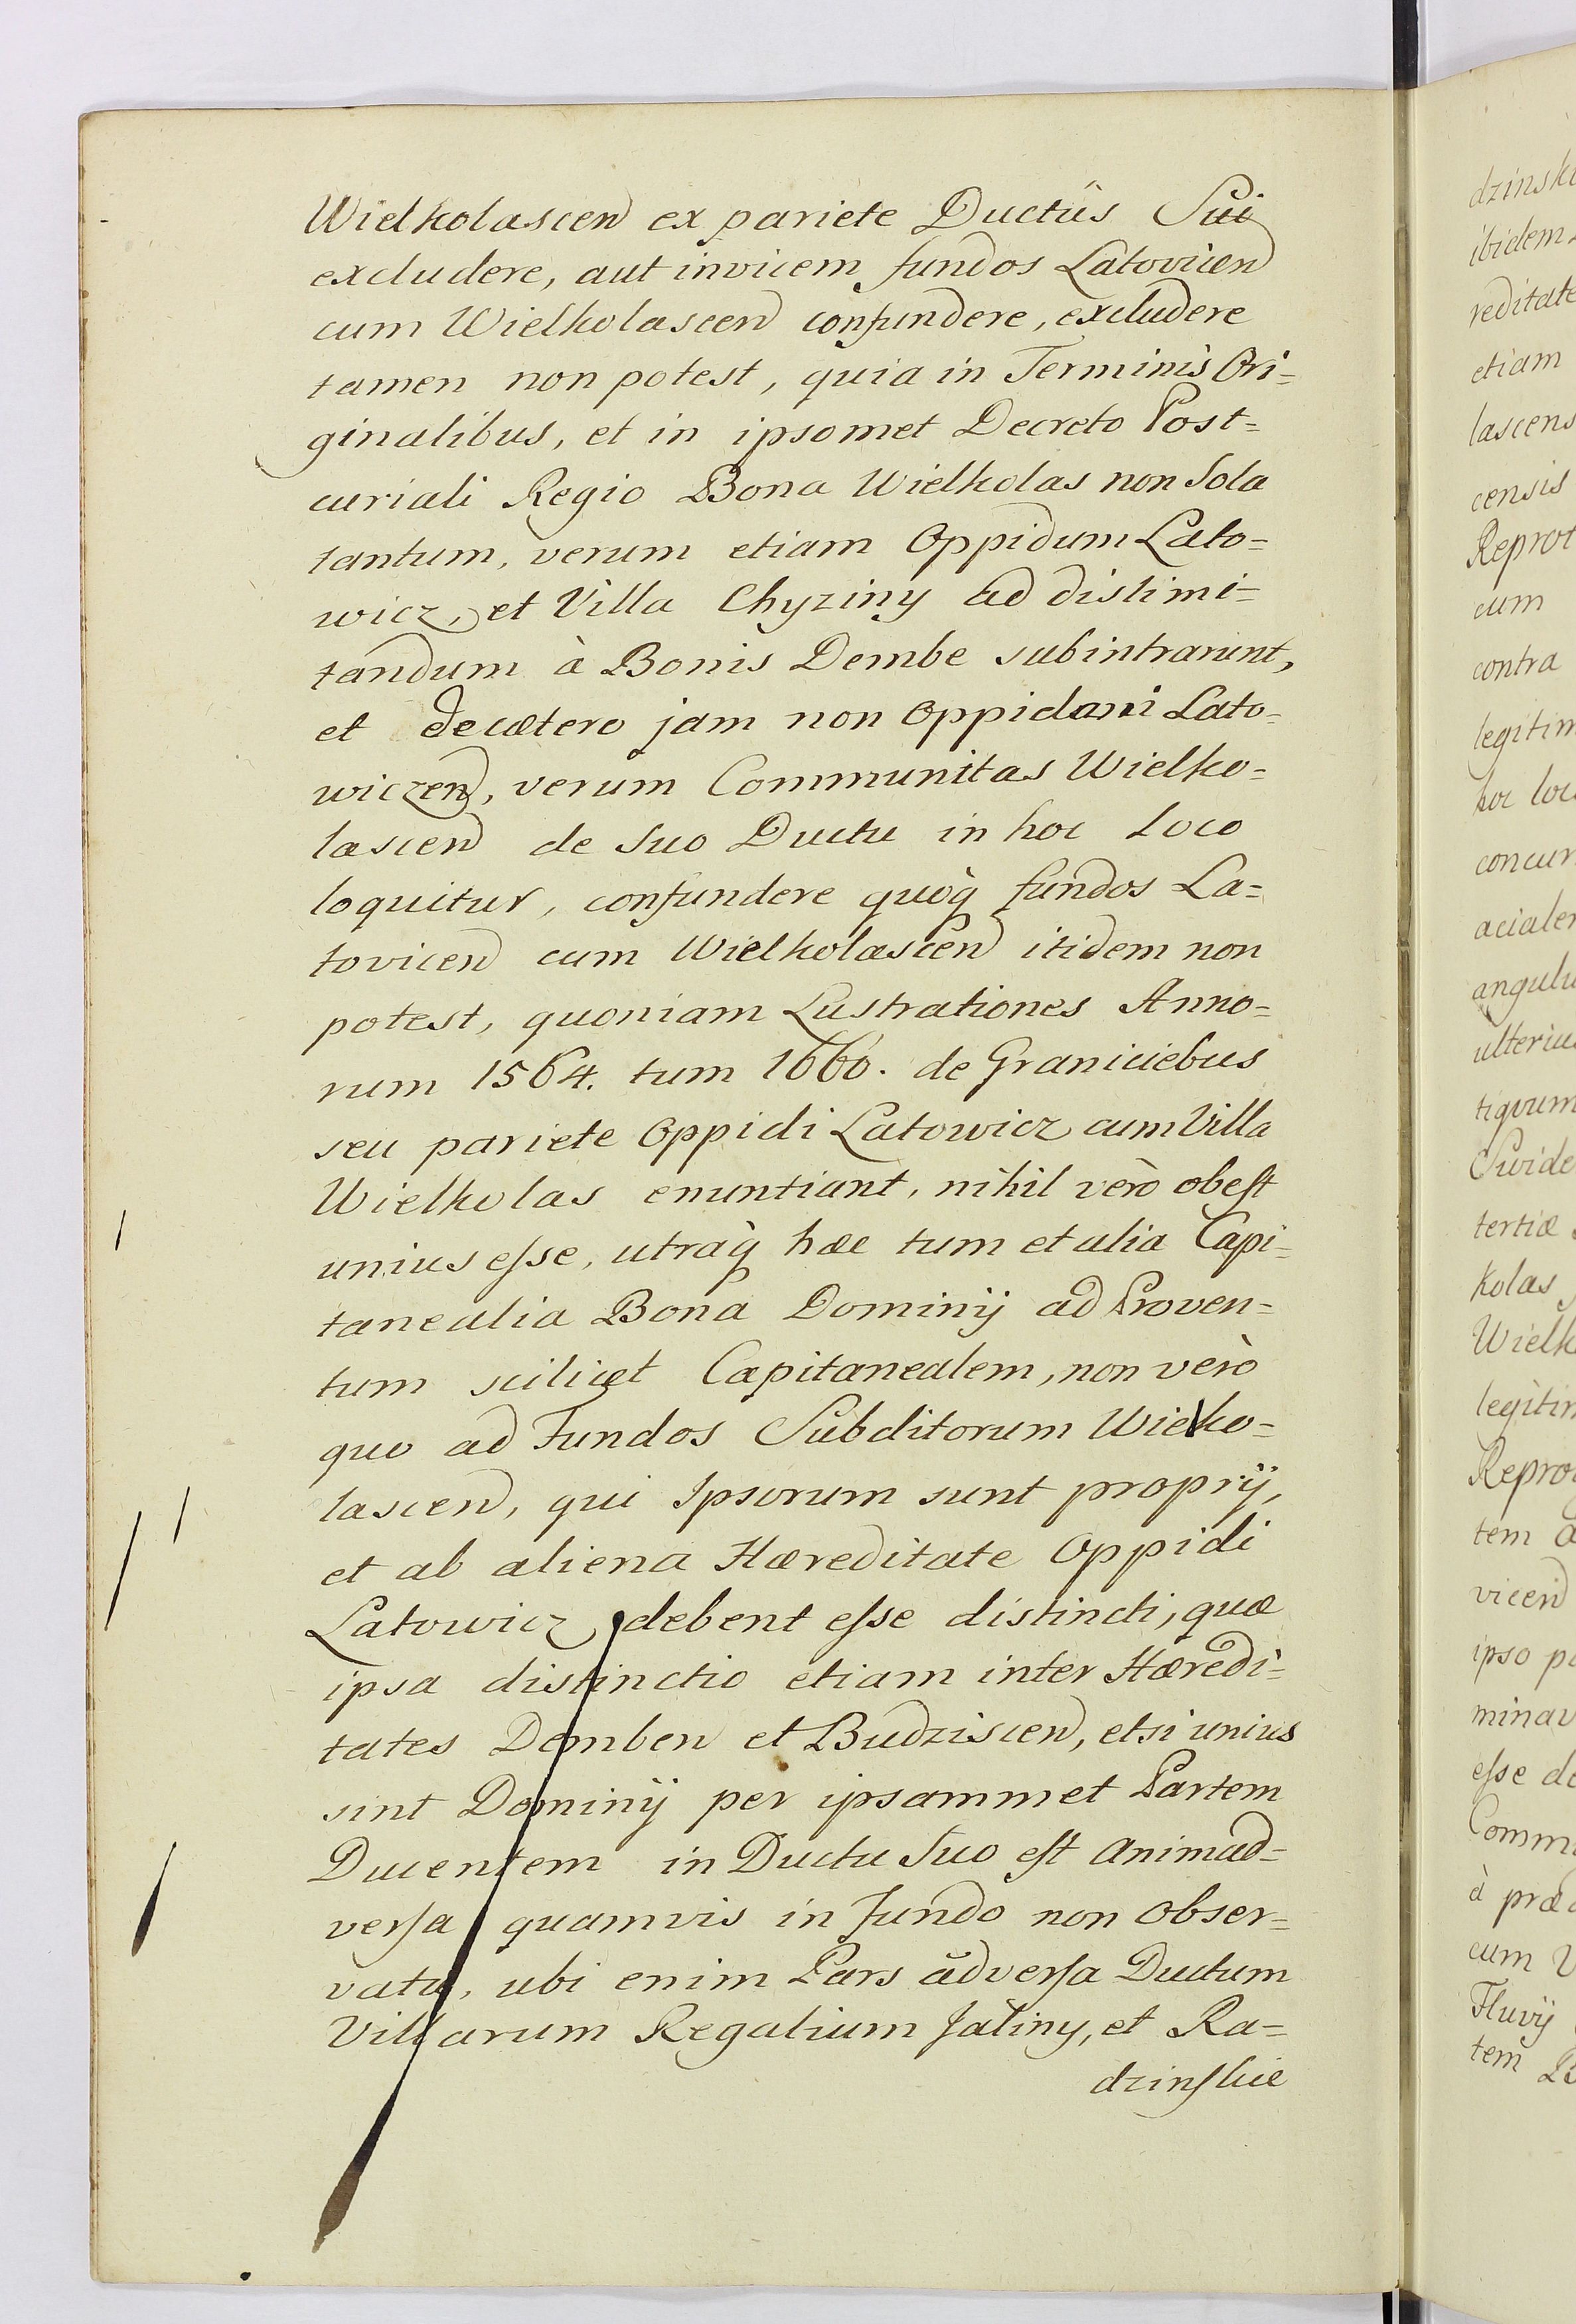 Wielkolascen ex pariete Ductûs Sui
excludere, aut invicem fundos Latovicen
cum Wielkolascen confundere, excludere
tamen non potest, quia in Terminis Ori=
ginalibus, et in ipsomet Decreto Post=
curiali Regio Bona Wielkolas non Sola
tantum, verum etiam Oppidum Lato=
wicz, et Villa Chyziny ad distimi=
tandum à Bonis Dembe subintrarunt,
et de cætero jam non Oppidani Lato=
wiczen, verum Communitas Wielko=
lascen de Suo Ductu in hoc Loco
loquitur, confundere quòq fundos La=
tovicen cum Wielkolascen itidem non
potest, quoniam Lustrationes Anno=
rum 1564. tum 1660. de Graniciebus
seu pariete Oppidi Latowicz cum Villa
Wielkolas enuntiant, nihil verò obest
unius esse, utraq̀ hæc tum et alia Capi=
tanealia Bona Dominij ad Proven=
tum scilicet Capitanealem, non verò
quo ad Fundos Subditorum Wielko=
lascen, qui Ipsorum sunt proprij,
et ab aliena Hæreditate Oppidi
Latowicz debent esse distincti, quæ
ipsa distinctio etiam inter Hæredi=
tates Demben et Budziscen, etsi unius
sint Dominij per ipsammet Partem
Ducentem in Ductu Suo est Animad=
versa quamvis in Fundo non Obser=
vata, ubi enim Pars adversa Ductum
Villarum Regalium Jaliny, et Ra=
dzinskie
dzinsk
ibidem
reditate
etiam
lascens
censis
Reprot
cum
contra
legitim
hoc loc
concur
aciale
angulu
ulteriu
tiqvum
Swide
tertiæ
Kolas
Wielk
legitim
Repro
tem a
vicen
ipso pa
minav
esse de
Comm
à præd
cum V
Fluvij
tem B